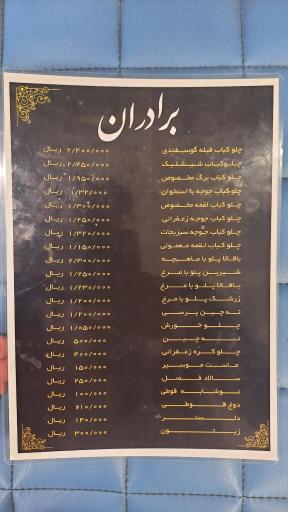 برادران
چلو کباب فیله گوسفندی ۲/۴۰۰/۰۰۰ ریال
چلوکباب شیشلیک ۲/۴۵۰/۰۰۰ ریال
چلو کباب برگ مخصوص ۱/۹۵۰/۰۰۰ ریال
چلو کباب جوجه با استخوان ۱/۳۲/۰۰۰ ریال
چلو کباب لقمه مخصوص ۱/۳۰۵/۰۰۰ ریال
چلو کباب جوجه زعفرانی ۱/۲۵۰/۰۰۰ ریال
چلو کباب جوجه سبزیجات ۱/۳۲۰/۰۰۰ ریال
چلو کباب لقمه معمولی ۱/۱۵۰/۰۰۰ ریال
باقالا پلو با ماهیچه ۲/۳۰۰/۰۰۰ ریال
شیرین پلو با مرغ ۱/۲۵۰/۰۰۰ ریال
باقالا پلو با مرغ ۱/۲۳۰/۰۰۰ ریال
زرشک پلو با مرغ ۱/۲۰۰/۰۰۰ ریال
ته چین پرسی ۱/۲۰۰/۰۰۰ ریال
چلو خورش ۱/۰۵۰/۰۰۰ ریال
ته چین ۵۰۰/۰۰۰ ریال
چلو کره زعفرانی ۴۰۰/۰۰۰ ریال
ماست موسیر ۱۵۰/۰۰۰ ریال
سالاد فصل ۲۵۰/۰۰۰ ریال
نوشابه قوطی ۱۰۰/۰۰۰ ریال
دوغ قوطی ۲۱۰/۰۰۰ ریال
دلستر ۱۴۰/۰۰۰ ریال
زیتون ۳۰۰/۰۰۰ ریال